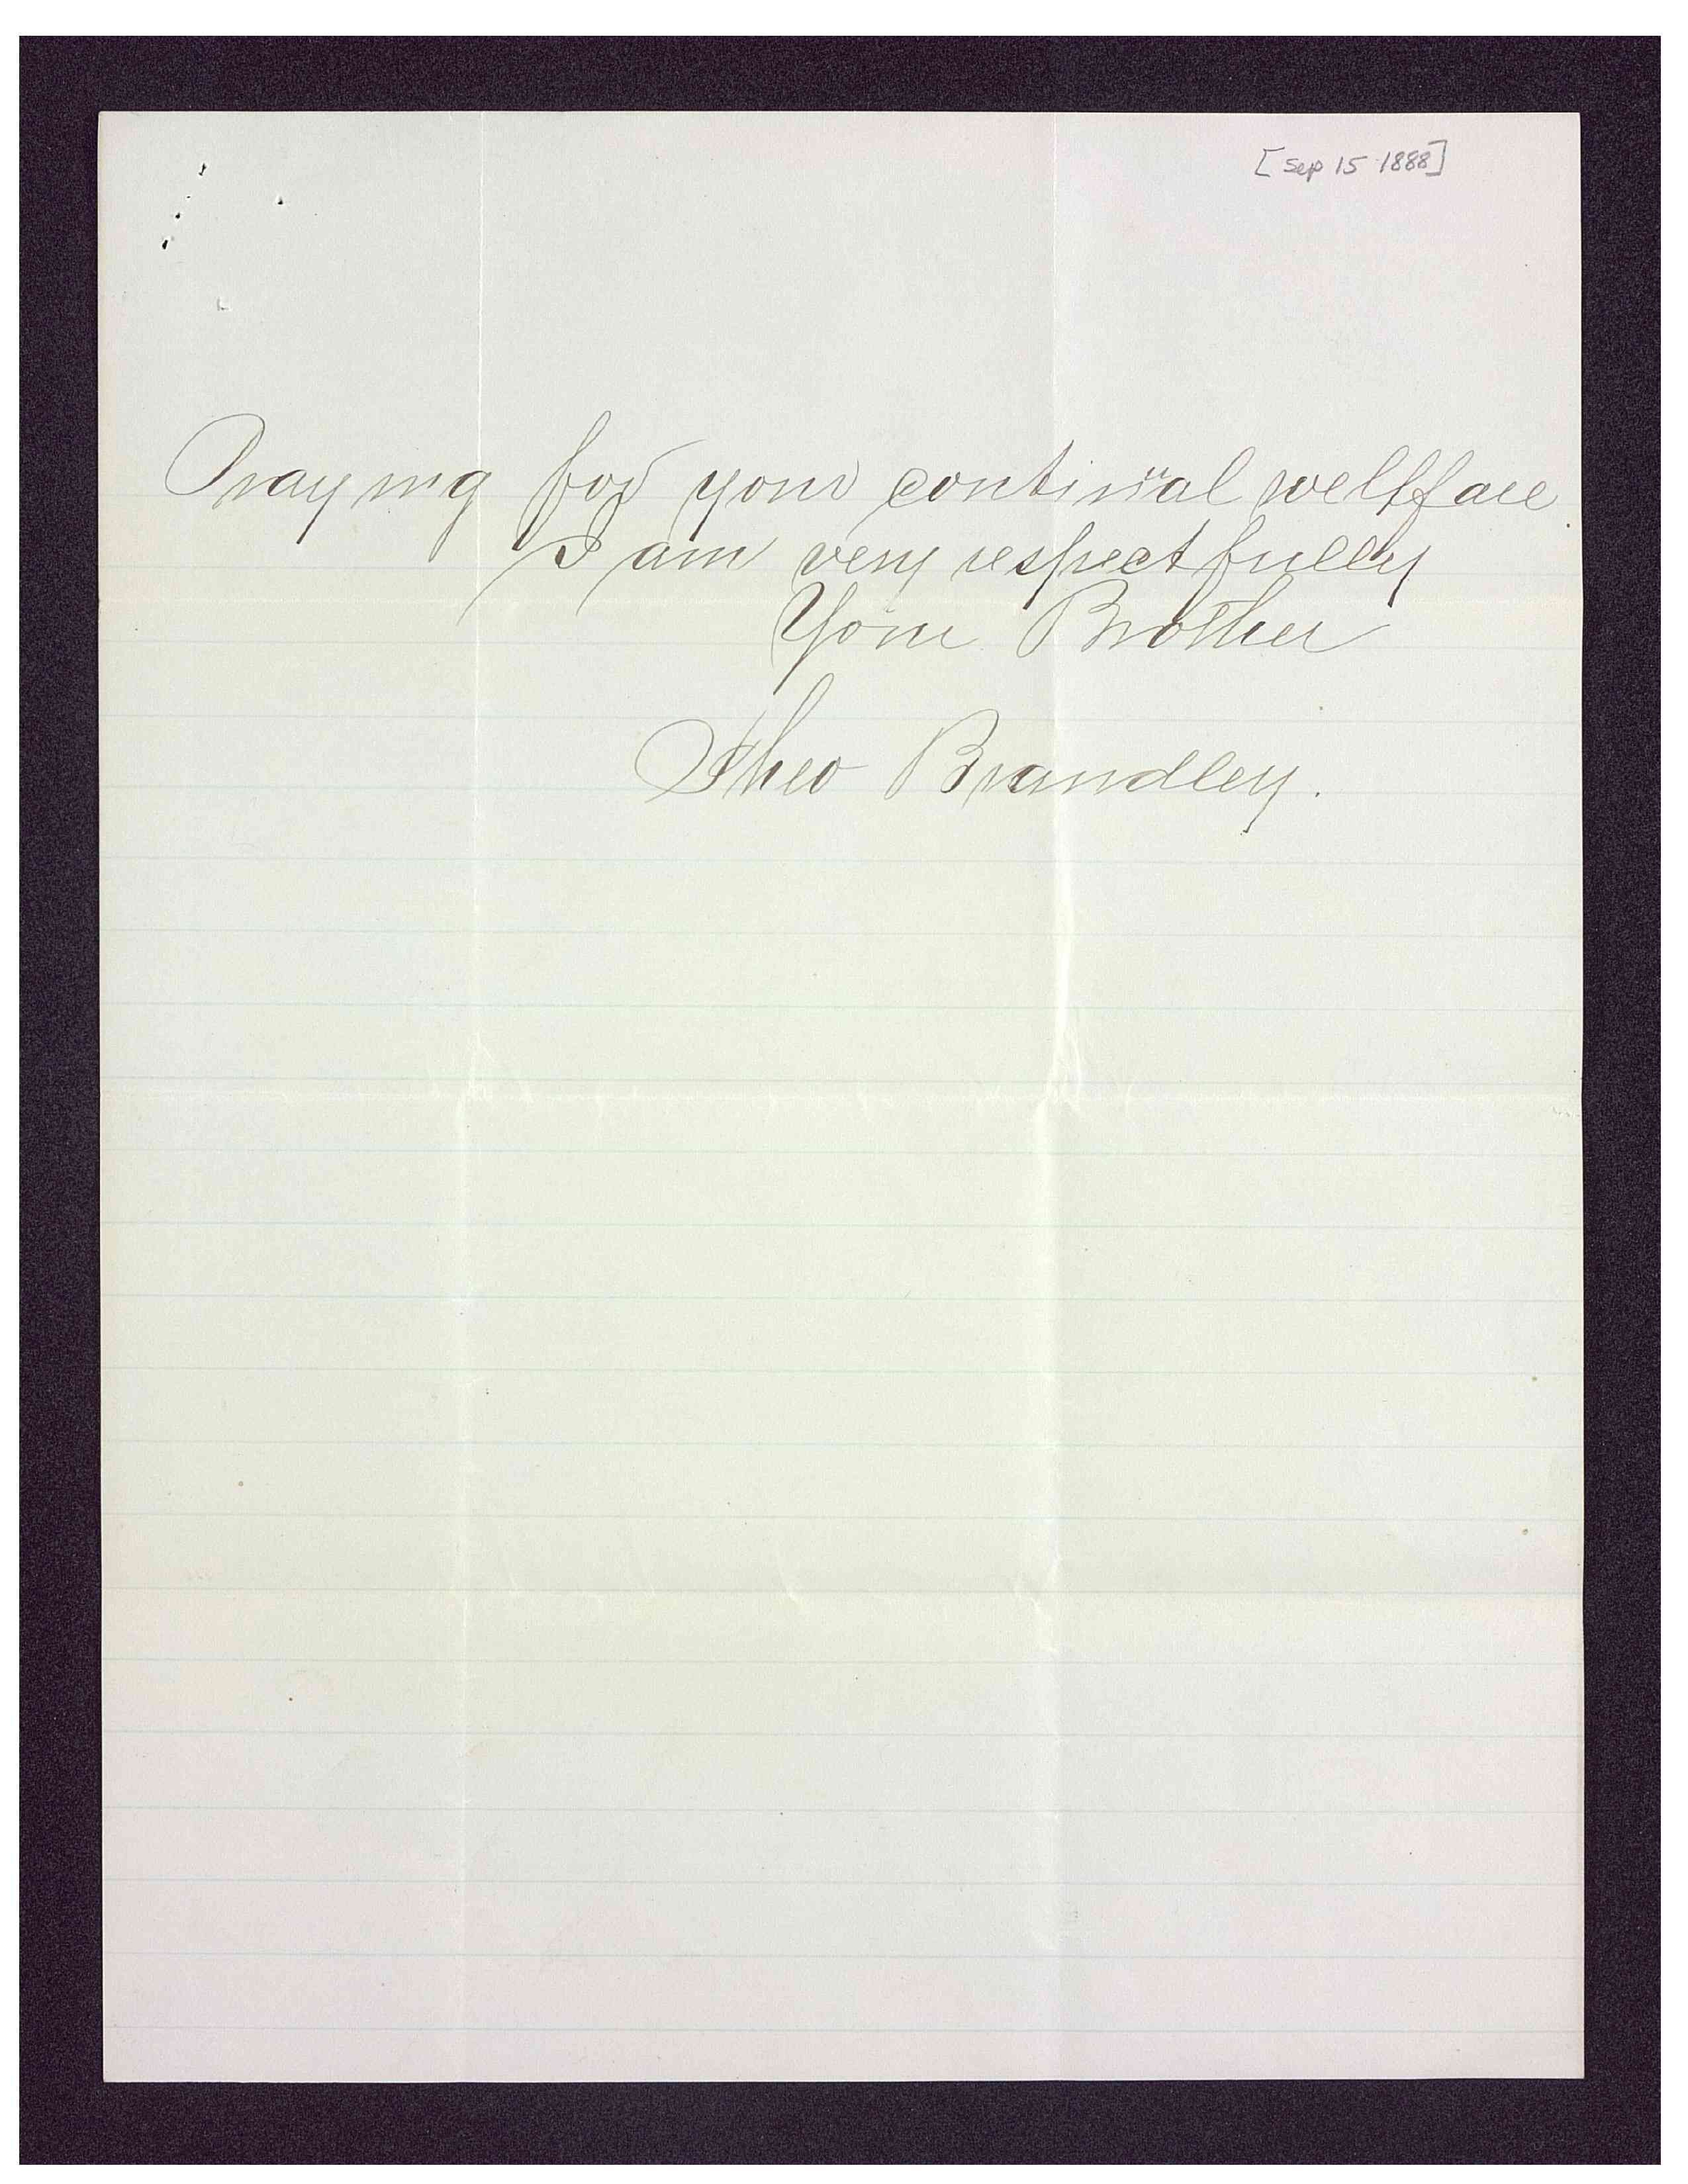 [Sep 15 1888]
Praying for your continual wellfare.
I am very respectfully
Your Brother
Theo Brandley.